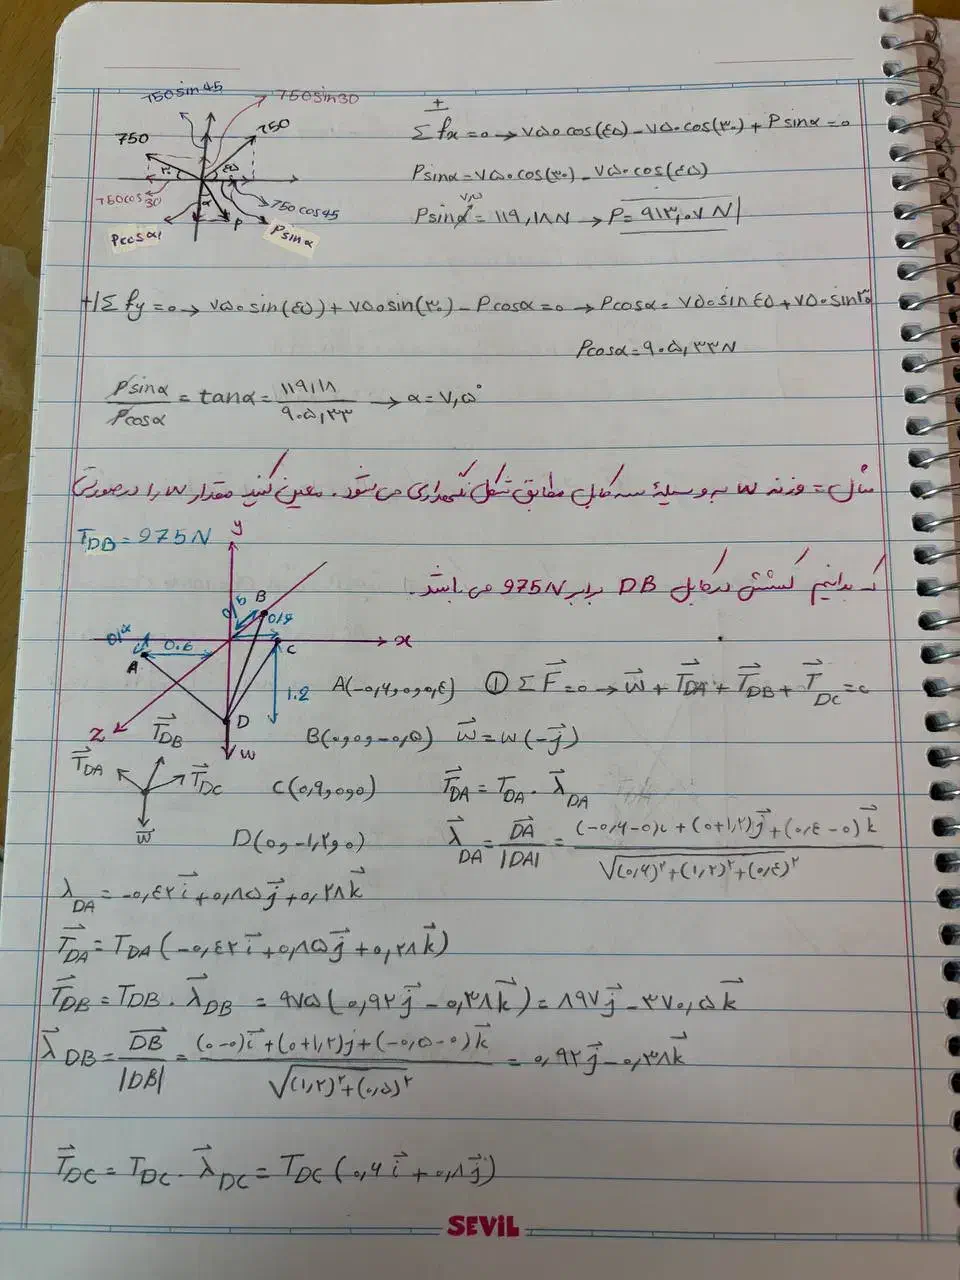 750 sin 45
750 sin 30
750
750
۳۰
٤۵
750 cos 30
750 cos 45
α
P
P cos α
P sin α
Σfx = ۰ → ۷۵۰ cos(٤۵) − ۷۵۰ cos(۳۰) + P sinα = ۰
P sinα = ۷۵۰ cos(۳۰) − ۷۵۰ cos(٤۵)
۷٫۵
P sinα = ۱۱۹٫۱۸ N → P = ۹۱۳٫۰۷ N
+↑Σfy = ۰ → ۷۵۰ sin(٤۵) + ۷۵۰ sin(۳۰) − P cosα = ۰ → P cosα = ۷۵۰ sin ٤۵ + ۷۵۰ sin ۳۰
P cosα = ۹۰۵٫۳۳ N
P sinα / P cosα = tanα = ۱۱۹٫۱۸ / ۹۰۵٫۳۳ → α = ۷٫۵°
مثال = وزنه W به وسیلهٔ سه کابل مطابق شکل نگهداری می شود. معین کنید مقدار W را در صورتی
که بدانیم کشش در کابل DB برابر 975N می باشد.
T_DB = 975 N
y
B
x
C
A
0.6
1.2
D
Z
W
T_DB
T_DA
T_DC
W
A(−۰٫۶, ۰, ۰٫٤) ① ΣF = ۰ → W + T_DA + T_DB + T_DC = ۰
B(۰, ۰, −۰٫۵) W = W(−j)
C(۰٫۹, ۰, ۰) T_DA = T_DA · λ_DA
D(۰, −۱٫۲, ۰) λ_DA = DA / |DA| = (−۰٫۶−۰)i + (۰+۱٫۲)j + (۰٫٤−۰)k / √(۰٫۶)² + (۱٫۲)² + (۰٫٤)²
λ_DA = −۰٫٤۲ i + ۰٫۸۵ j + ۰٫۲۸ k
T_DA = T_DA (−۰٫٤۲ i + ۰٫۸۵ j + ۰٫۲۸ k)
T_DB = T_DB · λ_DB = ۹۷۵ (۰٫۹۲ j − ۰٫۳۸ k) = ۸۹۷ j − ۳۷۰٫۵ k
λ_DB = DB / |DB| = (۰−۰)i + (۰+۱٫۲)j + (−۰٫۵−۰)k / √(۱٫۲)² + (۰٫۵)² = ۰٫۹۲ j − ۰٫۳۸ k
T_DC = T_DC · λ_DC = T_DC (۰٫۶ i + ۰٫۸ j)
SEVIL